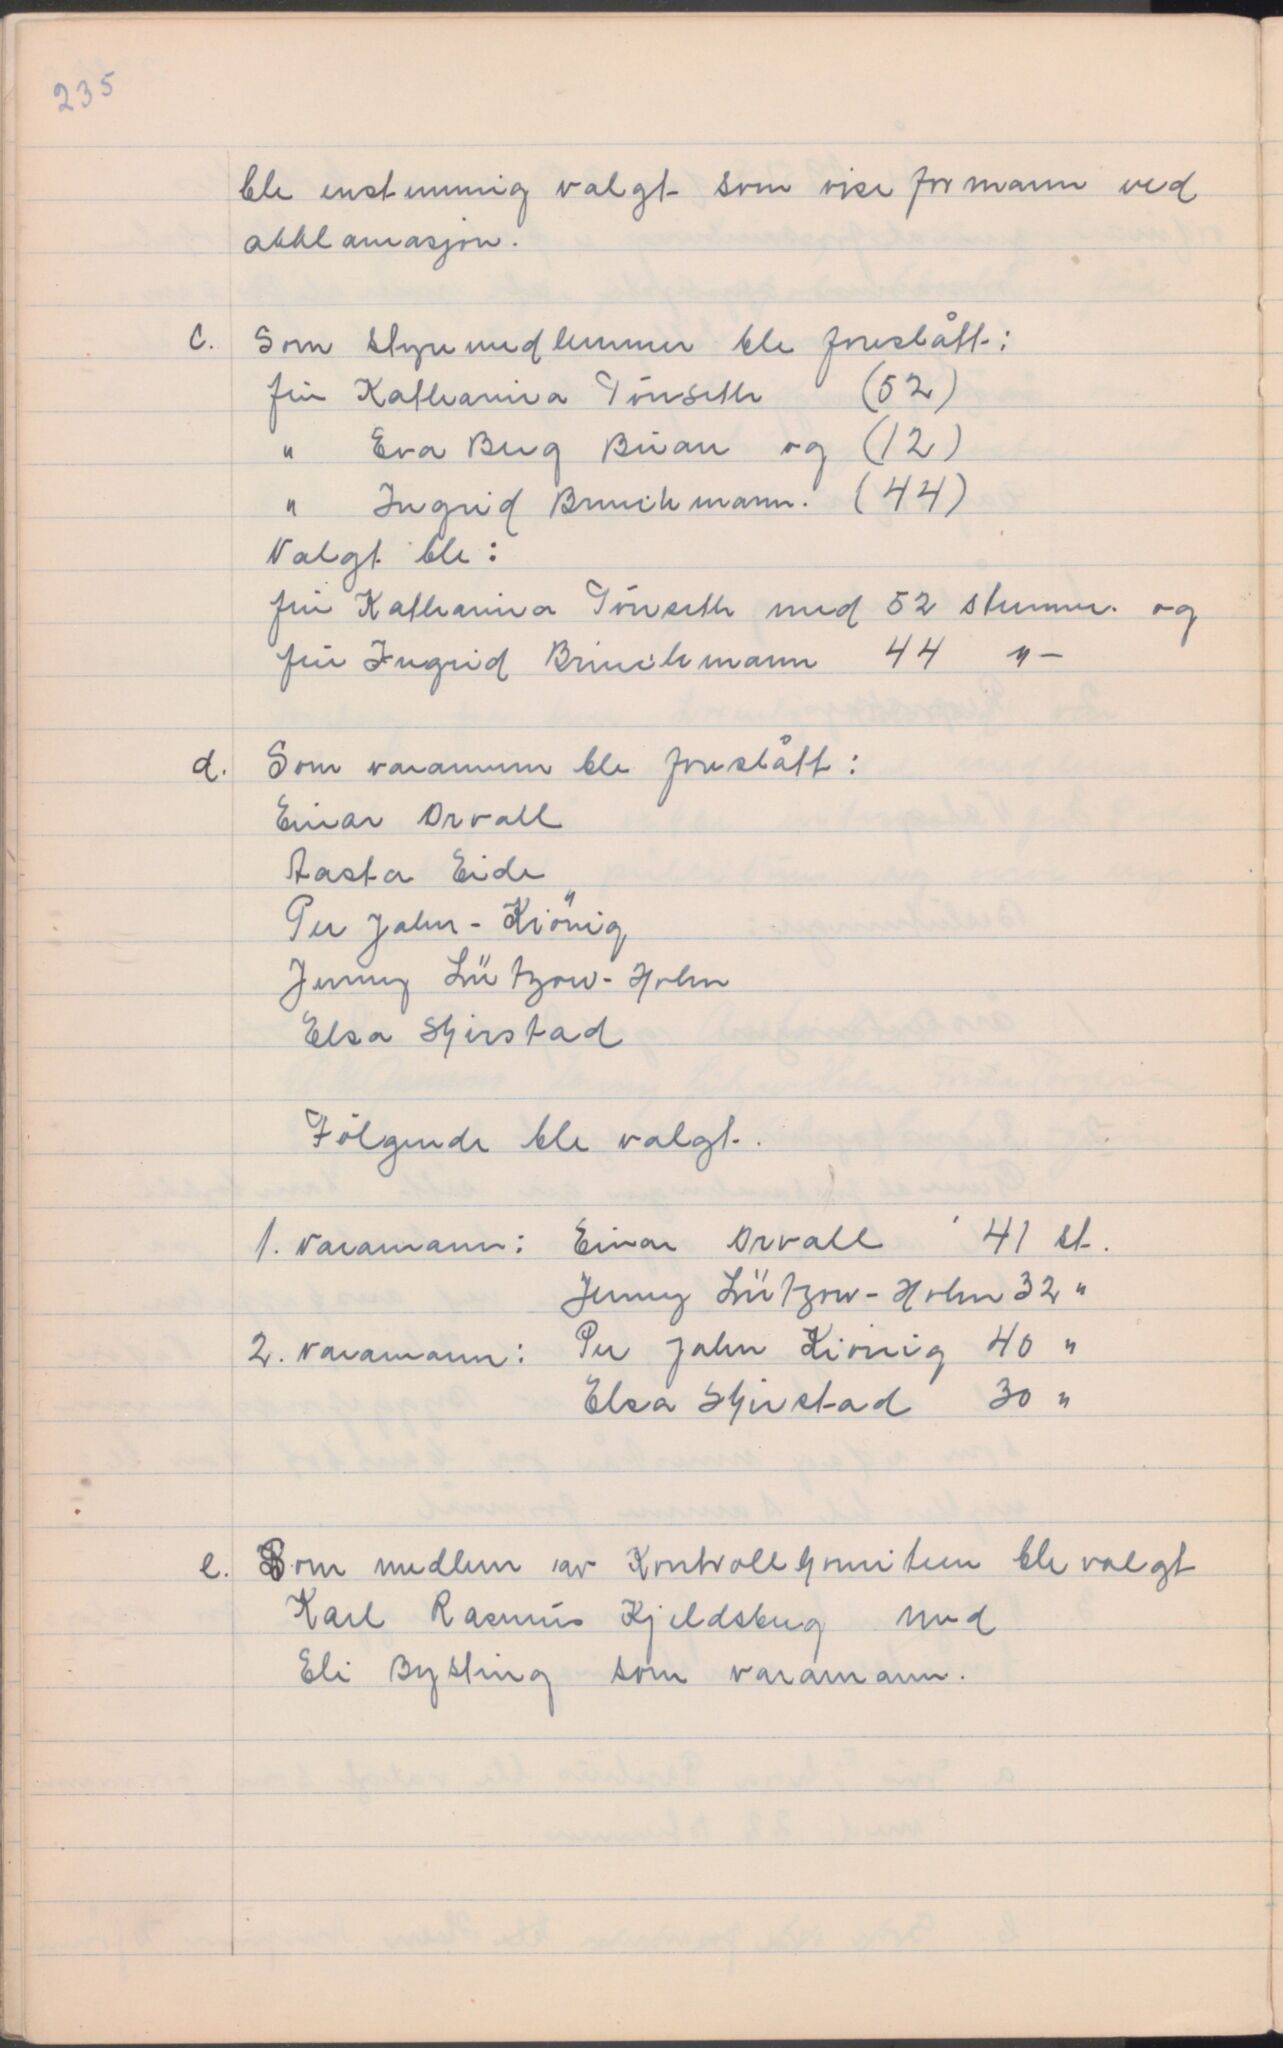 235
ble enstemmig valgt som vise formann ved
akklamasjon.
c. Som styremedlemmer ble foreslått:
frú Katharina Tönseth (52)
" Eva Berg Brúan og (12)
" Ingrid Brinchmann. (44)
Valgt ble:
frú Katharina Tönseth med 52 stemmer. og
frú Ingrid Brinchmann 44 "-
d. Som varamenn ble foreslått:
Einar Orvall
Aasta Eide
Per Jahn-Kiönig
Jenny Lützow-Holm
Elsa Skjerstad
Følgende ble valgt.
1. varamann: Einar Orvall 41 st.
Jenny Lützow-Holm 32 "
2. varamann: Per Jahn Kiönig 40 "
Elsa Skjerstad 30 "
e. Som medlem av Kontrollkomiteen ble valgt
Karl Rasmús Kjeldsberg med
Eli Bysting som varamann.